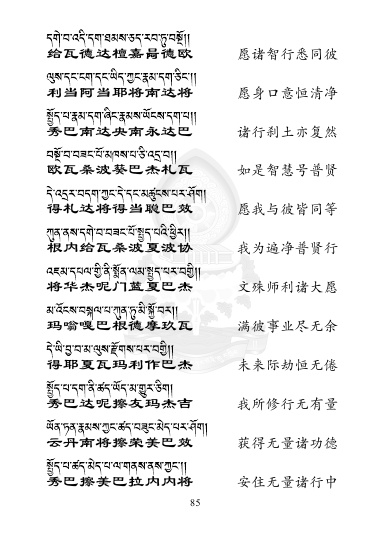 དགེ་བ་འདི་དག་ཐམས་ཅད་རབ་ཏུ་བསྔོ།།
给瓦德达檀嘉昌德欧 愿诸智行悉同彼
ལུས་དང་ངག་དང་ཡིད་ཀྱང་རྣམ་དག་ཅིང་།།
利当阿当耶将南达将 愿身口意恒清净
སྤྱོད་པ་རྣམ་དག་ཞིང་རྣམས་ཡོངས་དག་པ།།
秀巴南达央南永达巴 诸行刹土亦复然
བསྔོ་བ་བཟང་པོ་མཁས་པ་ཅི་འདྲ་བ།།
欧瓦桑波葵巴杰札瓦 如是智慧号普贤
དེ་འདྲར་བདག་ཀྱང་དེ་དང་མཚུངས་པར་ཤོག།
得札达将得当聪巴效 愿我与彼皆同等
ཀུན་ནས་དགེ་བ་བཟང་པོ་སྤྱད་པའི་ཕྱིར།།
根内给瓦桑波夏波协 我为遍净普贤行
འཇམ་དཔལ་གྱི་ནི་སྨོན་ལམ་སྤྱད་པར་བགྱི།།
将华杰呢门蓝夏巴杰 文殊师利诸大愿
མ་འོངས་བསྐལ་པ་ཀུན་ཏུ་མི་སྐྱོ་བར།།
玛嗡嘎巴根德摩玖瓦 满彼事业尽无余
དེ་ཡི་བྱ་བ་མ་ལུས་རྫོགས་པར་བགྱི།།
得耶夏瓦玛利作巴杰 未来际劫恒无倦
སྤྱོད་པ་དག་ནི་ཚད་ཡོད་མ་གྱུར་ཅིག།
秀巴达呢擦友玛杰吉 我所修行无有量
ཡོན་ཏན་རྣམས་ཀྱང་ཚད་བཟུང་མེད་པར་ཤོག།
云丹南将擦荣美巴效 获得无量诸功德
སྤྱོད་པ་ཚད་མེད་པ་ལ་གནས་ནས་ཀྱང་།།
秀巴擦美巴拉内内将 安住无量诸行中
85